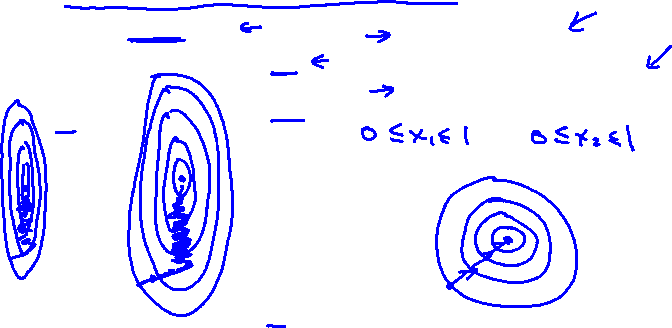 0 ≤ x₁ ≤ 1 0 ≤ x₂ ≤ 1